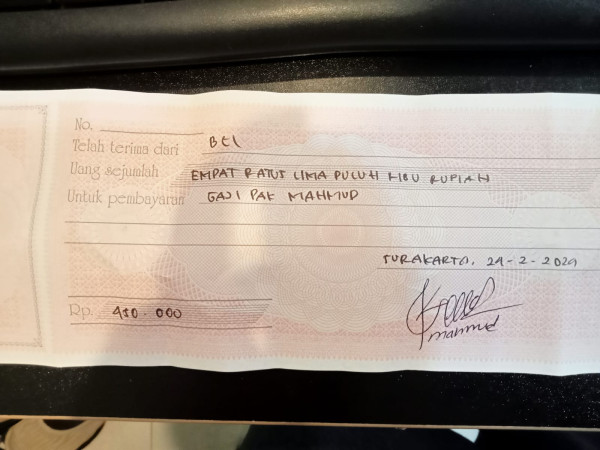 No.
Telah terima dari BEI
Uang sejumlah EMPAT RATUS LIMA PULUH RIBU RUPIAH
Untuk pembayaran GAJI PAK MAHMUD
SURAKARTA, 29-2-2029
Rp. 450.000
mahmud